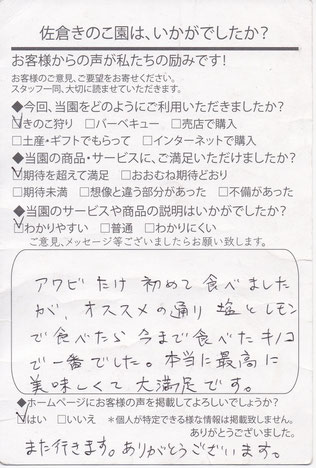 佐倉きのこ園は、いかがでしたか?
お客様からの声が私たちの励みです!
お客様のご意見、ご要望をお寄せください。
スタッフ一同、大切に読ませていただきます。
◆今回、当園をどのようにご利用いただきましたか?
☑きのこ狩り □バーベキュー □売店で購入
□土産・ギフトでもらって □インターネットで購入
◆当園の商品・サービスに、ご満足いただけましたか?
☑期待を超えて満足 □おおむね期待どおり
□期待未満 □想像と違う部分があった □不備があった
◆当園のサービスや商品の説明はいかがでしたか?
☑わかりやすい □普通 □わかりにくい
ご意見、メッセージ等ございましたらお願い致します。
アワビたけ 初めて食べました
が、オススメの通り 塩とレモン
で食べたら 今まで食べたキノコ
で一番でした。本当に最高に
美味しくて 大満足です。
◆ホームページにお客様の声を掲載してよろしいでしょうか?
☑はい □いいえ *個人が特定できる様な情報は掲載致しません。
ありがとうございました。
また行きます。ありがとうございます。